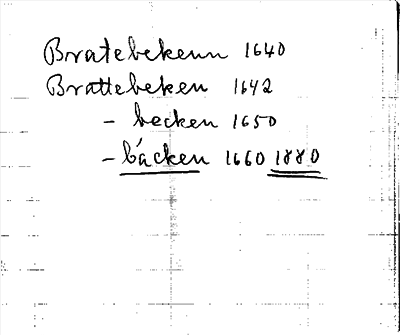 Bratebekenn 1640
Brattebeken 1642
- becken 1650
- bäcken 1660 1880